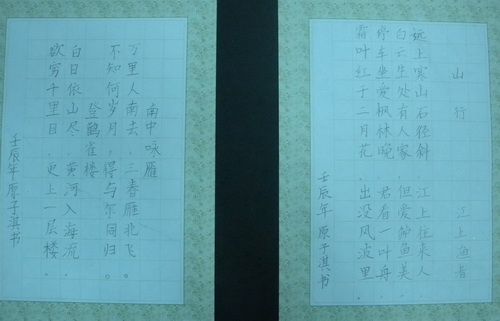 山行
远上寒山石径斜
白云生处有人家
停车坐爱枫林晚
霜叶红于二月花。
江上渔者
江上往来人
但爱鲈鱼美
君看一叶舟
出没风波里
壬辰年 原子淇书
南中咏雁
万里人南去，三春雁北飞
不知何岁月，得与尔同归。
登鹳雀楼
白日依山尽，黄河入海流。
欲穷千里目，更上一层楼。
壬辰年原子淇书